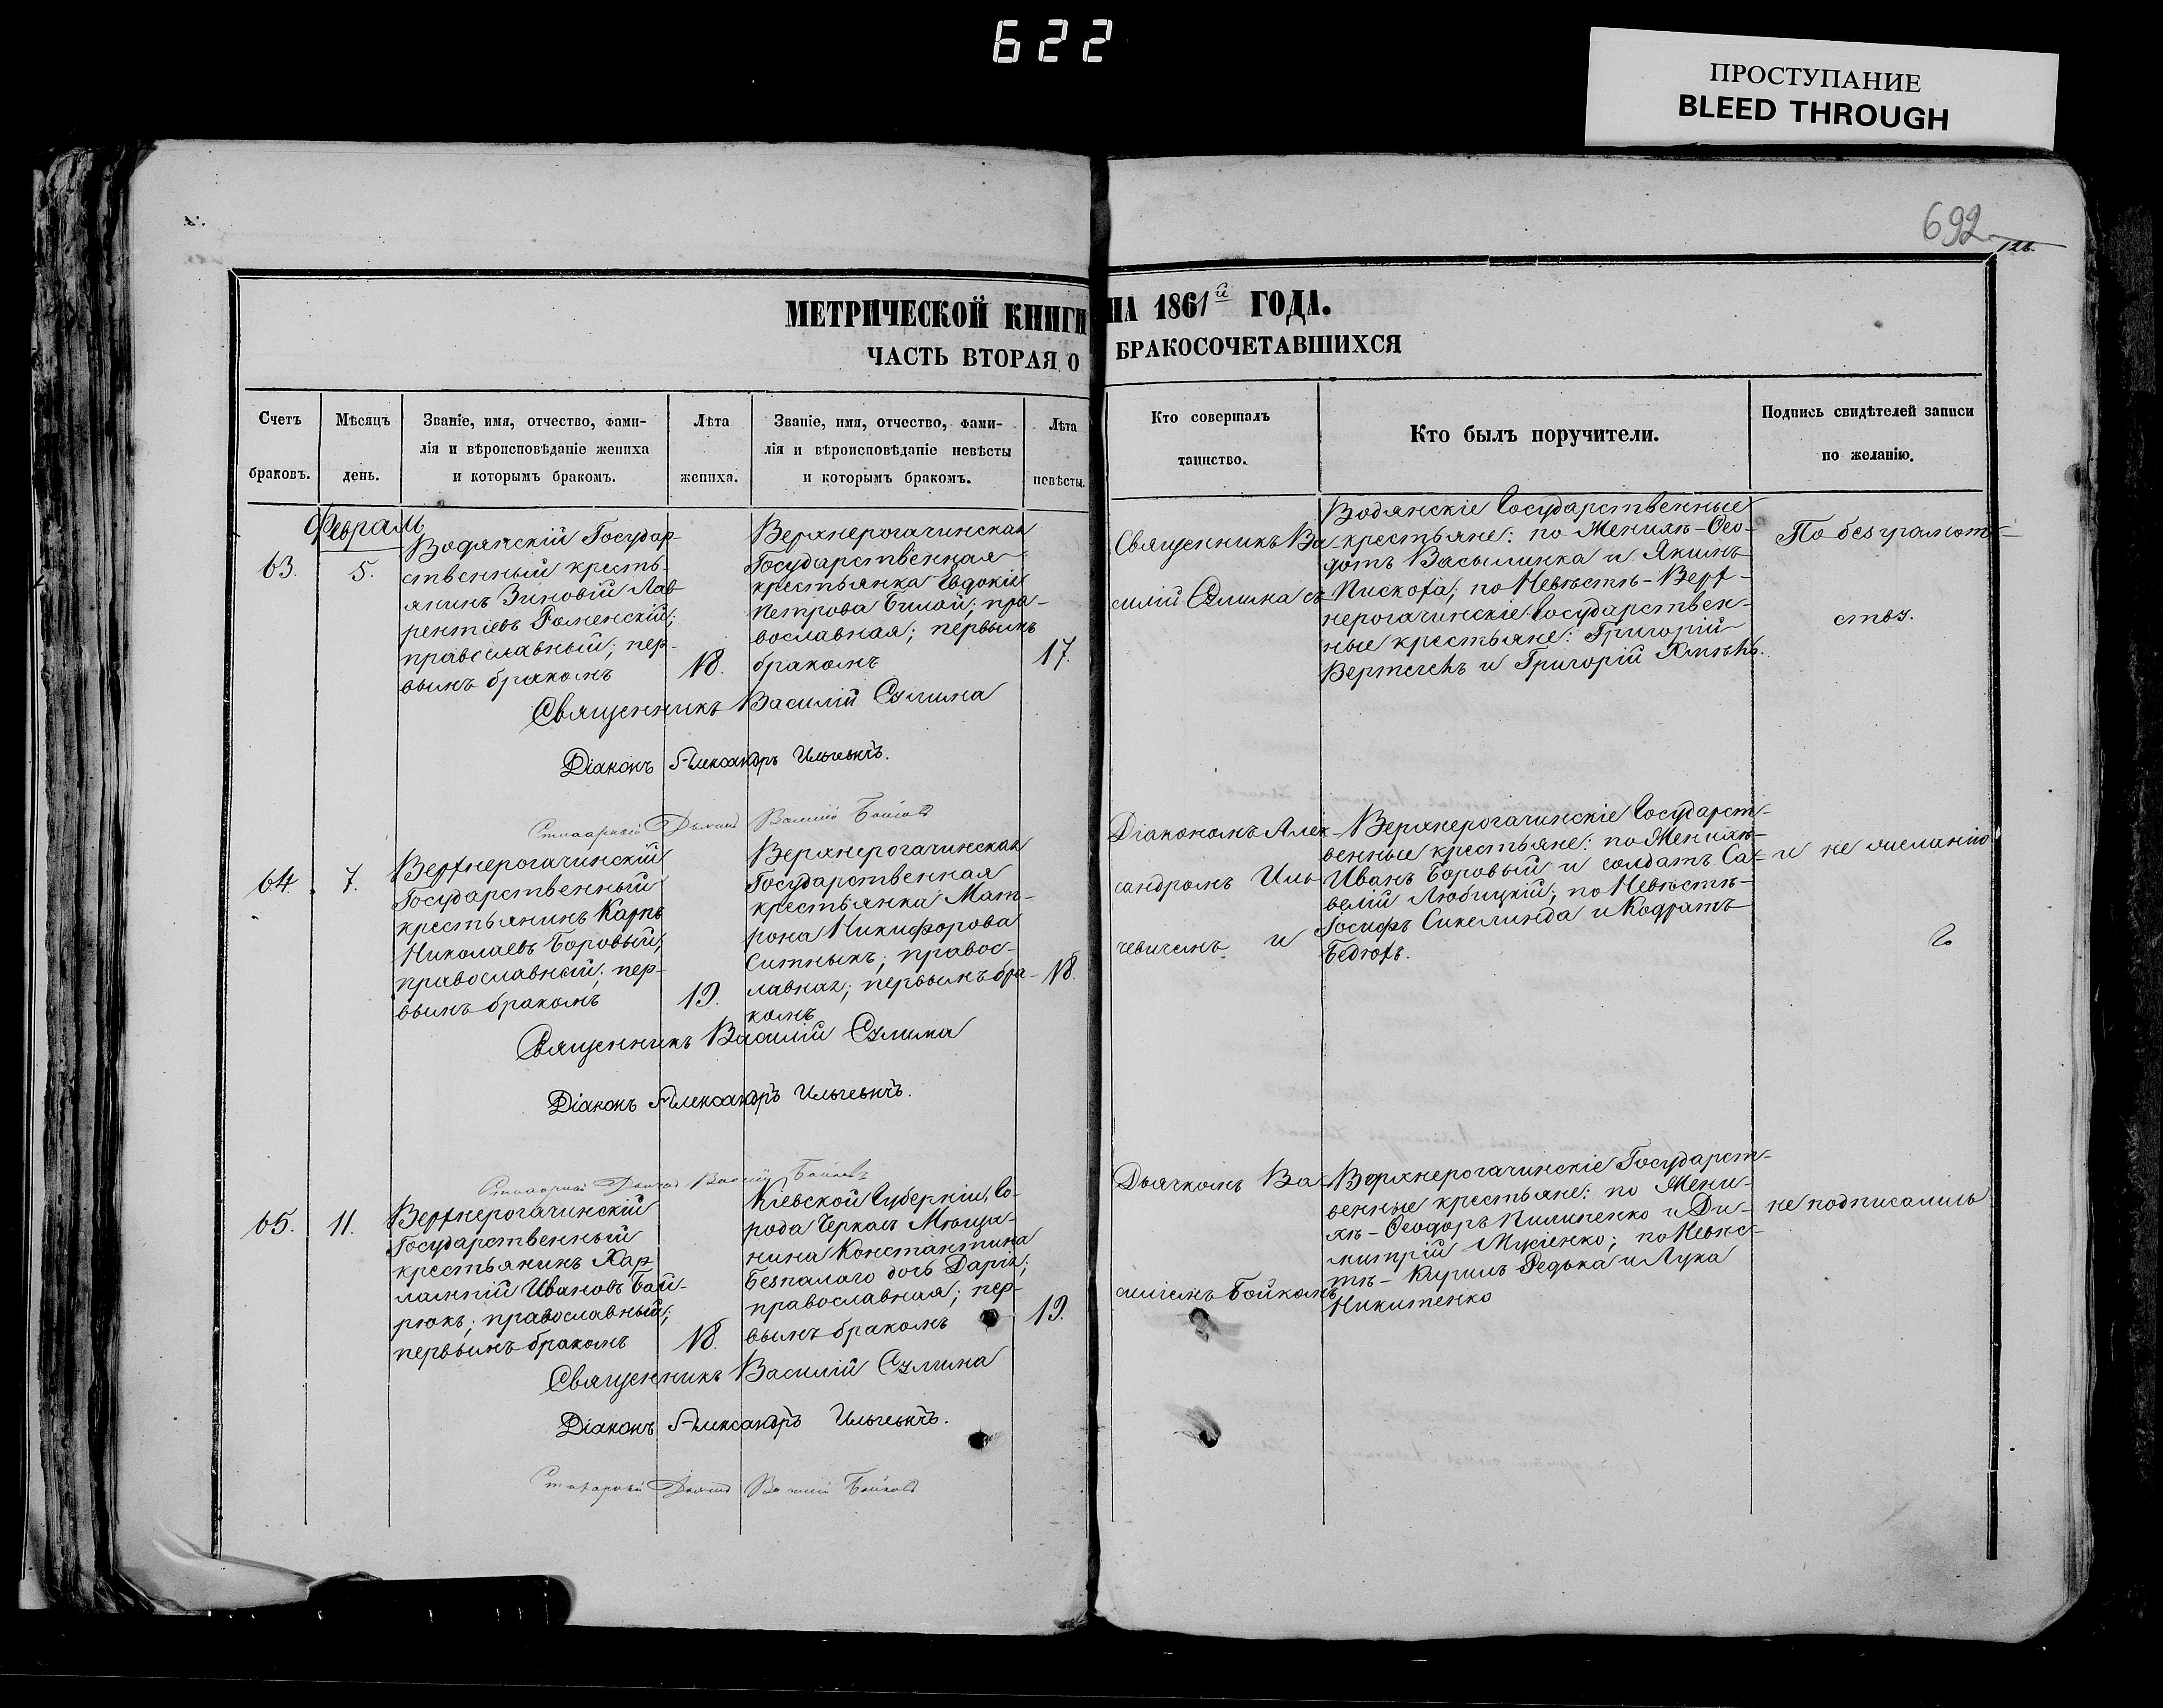 622
ПРОСТУПАНИЕ
BLEED THROUGH
692
126.
МЕТРИЧЕСКОЙ КНИГИ НА 1861й ГОДА.
ЧАСТЬ ВТОРАЯ О БРАКОСОЧЕТАВШИХСЯ
Счетъ
браковъ.
Мѣсяцъ
день.
Званіе, имя, отчество, фами-
лія и вѣроисповѣданіе жениха
и которымъ бракомъ.
Лѣта
жениха.
Званіе, имя, отчество, фами-
лія и вѣроисповѣданіе невѣсты
и которымъ бракомъ.
Лѣта
невѣсты.
Кто совершалъ
таинство.
Кто былъ поручители.
Подпись свидѣтелей записи
по желанію.
Февраль
63.
5.
Водянскій Государ-
ственный кресть-
янинъ Зиновій Лав-
рентіевъ Роменскій;
православный; пер-
вымъ бракомъ
18.
Верхнерогачинская
Государственная
крестьянка Евдокія
Петрова Билой; пра-
вославная; первымъ
бракомъ
17.
Священникъ Ва-
силій Слима съ
Водянскіе Государственные
крестьяне: по Женихѣ – Ѳео-
дотъ Васылинка и Якимъ
Пискоха; по Невѣстѣ – Верх-
нерогачинскіе Государствен-
ные крестьяне: Григорій
и Григорій
По безграмот-
ству.
Священникъ Василій Слима
Діаконъ Александръ Ильчевичъ.
Василій Бойковъ
64.
7.
Верхнерогачинскій
Государственный
крестьянинъ Карпъ
Николаевъ Боровый;
православный; пер-
вымъ бракомъ
19.
Верхнерогачинская
Государственная
крестьянка Мат-
рона Никифорова
Ситныкъ; правос-
лавная; первымъ бра-
комъ
18.
Діакономъ Алек-
сандромъ Иль-
чевичемъ и
Верхнерогачинскіе Государст-
венные крестьяне: по Женихѣ
Иванъ Боровый и солдатъ Са-
велій Любицкій; по Невѣстѣ –
Іосифъ Сикелинда и Кодратъ
и не
Священникъ Василій Слима
Діаконъ Александръ Ильчевичъ.
Василій Бойковъ
65.
11.
Верхнерогачинскій
Государственный
крестьянинъ Хар-
лампій Ивановъ Бай-
рюкъ; православный;
первымъ бракомъ
18.
Кіевской Губерніи, Го-
рода Черкасъ Мѣща-
нина Константина
Безпалаго дочь Дарія;
православная; пер-
вымъ бракомъ
19.
Дьячкомъ Ва-
силіемъ Бойкомъ
Верхнерогачинскіе Государст-
венные крестьяне: по Жени-
хѣ – Ѳеодоръ Пилипенко и Ди-
митрій Мусіенко; по Невѣс-
тѣ – Кирилъ Редька и Лука
Никитенко
не подписались
Священникъ Василій Слима
Діаконъ Александръ Ильчевичъ.
Василій Бойковъ